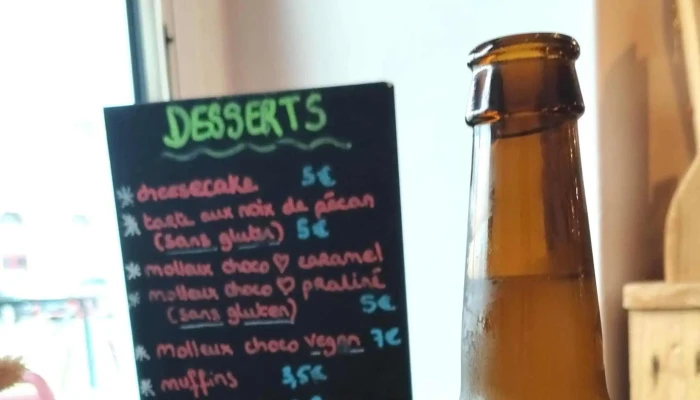 DESSERTS
* cheesecake 5€
* tarte aux noix de pécan
(sans gluten) 5€
* moelleux choco ♡ caramel
* moelleux choco ♡ praliné
(sans gluten) 5€
* moelleux choco vegan 7€
* muffins 3,5€